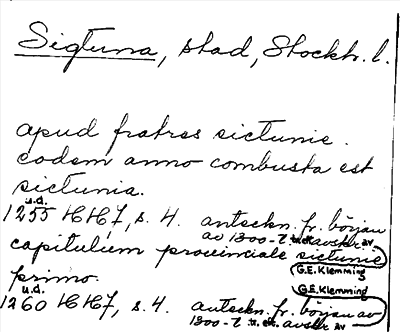 Sigtuna, stad, Stockh. l.
apud fratres sictunie.
eodem anno combusta est
sictunia.
u.d.
1255 HH7, s. 4. anteckn. fr. början
av 1300-t. avskr. av
capitulum provinciale sictunie
G.E.Klemming
primo.
u.d.
G.E.Klemming
1260 HH7, s. 4. anteckn. fr. början av
1300-t. avskr av